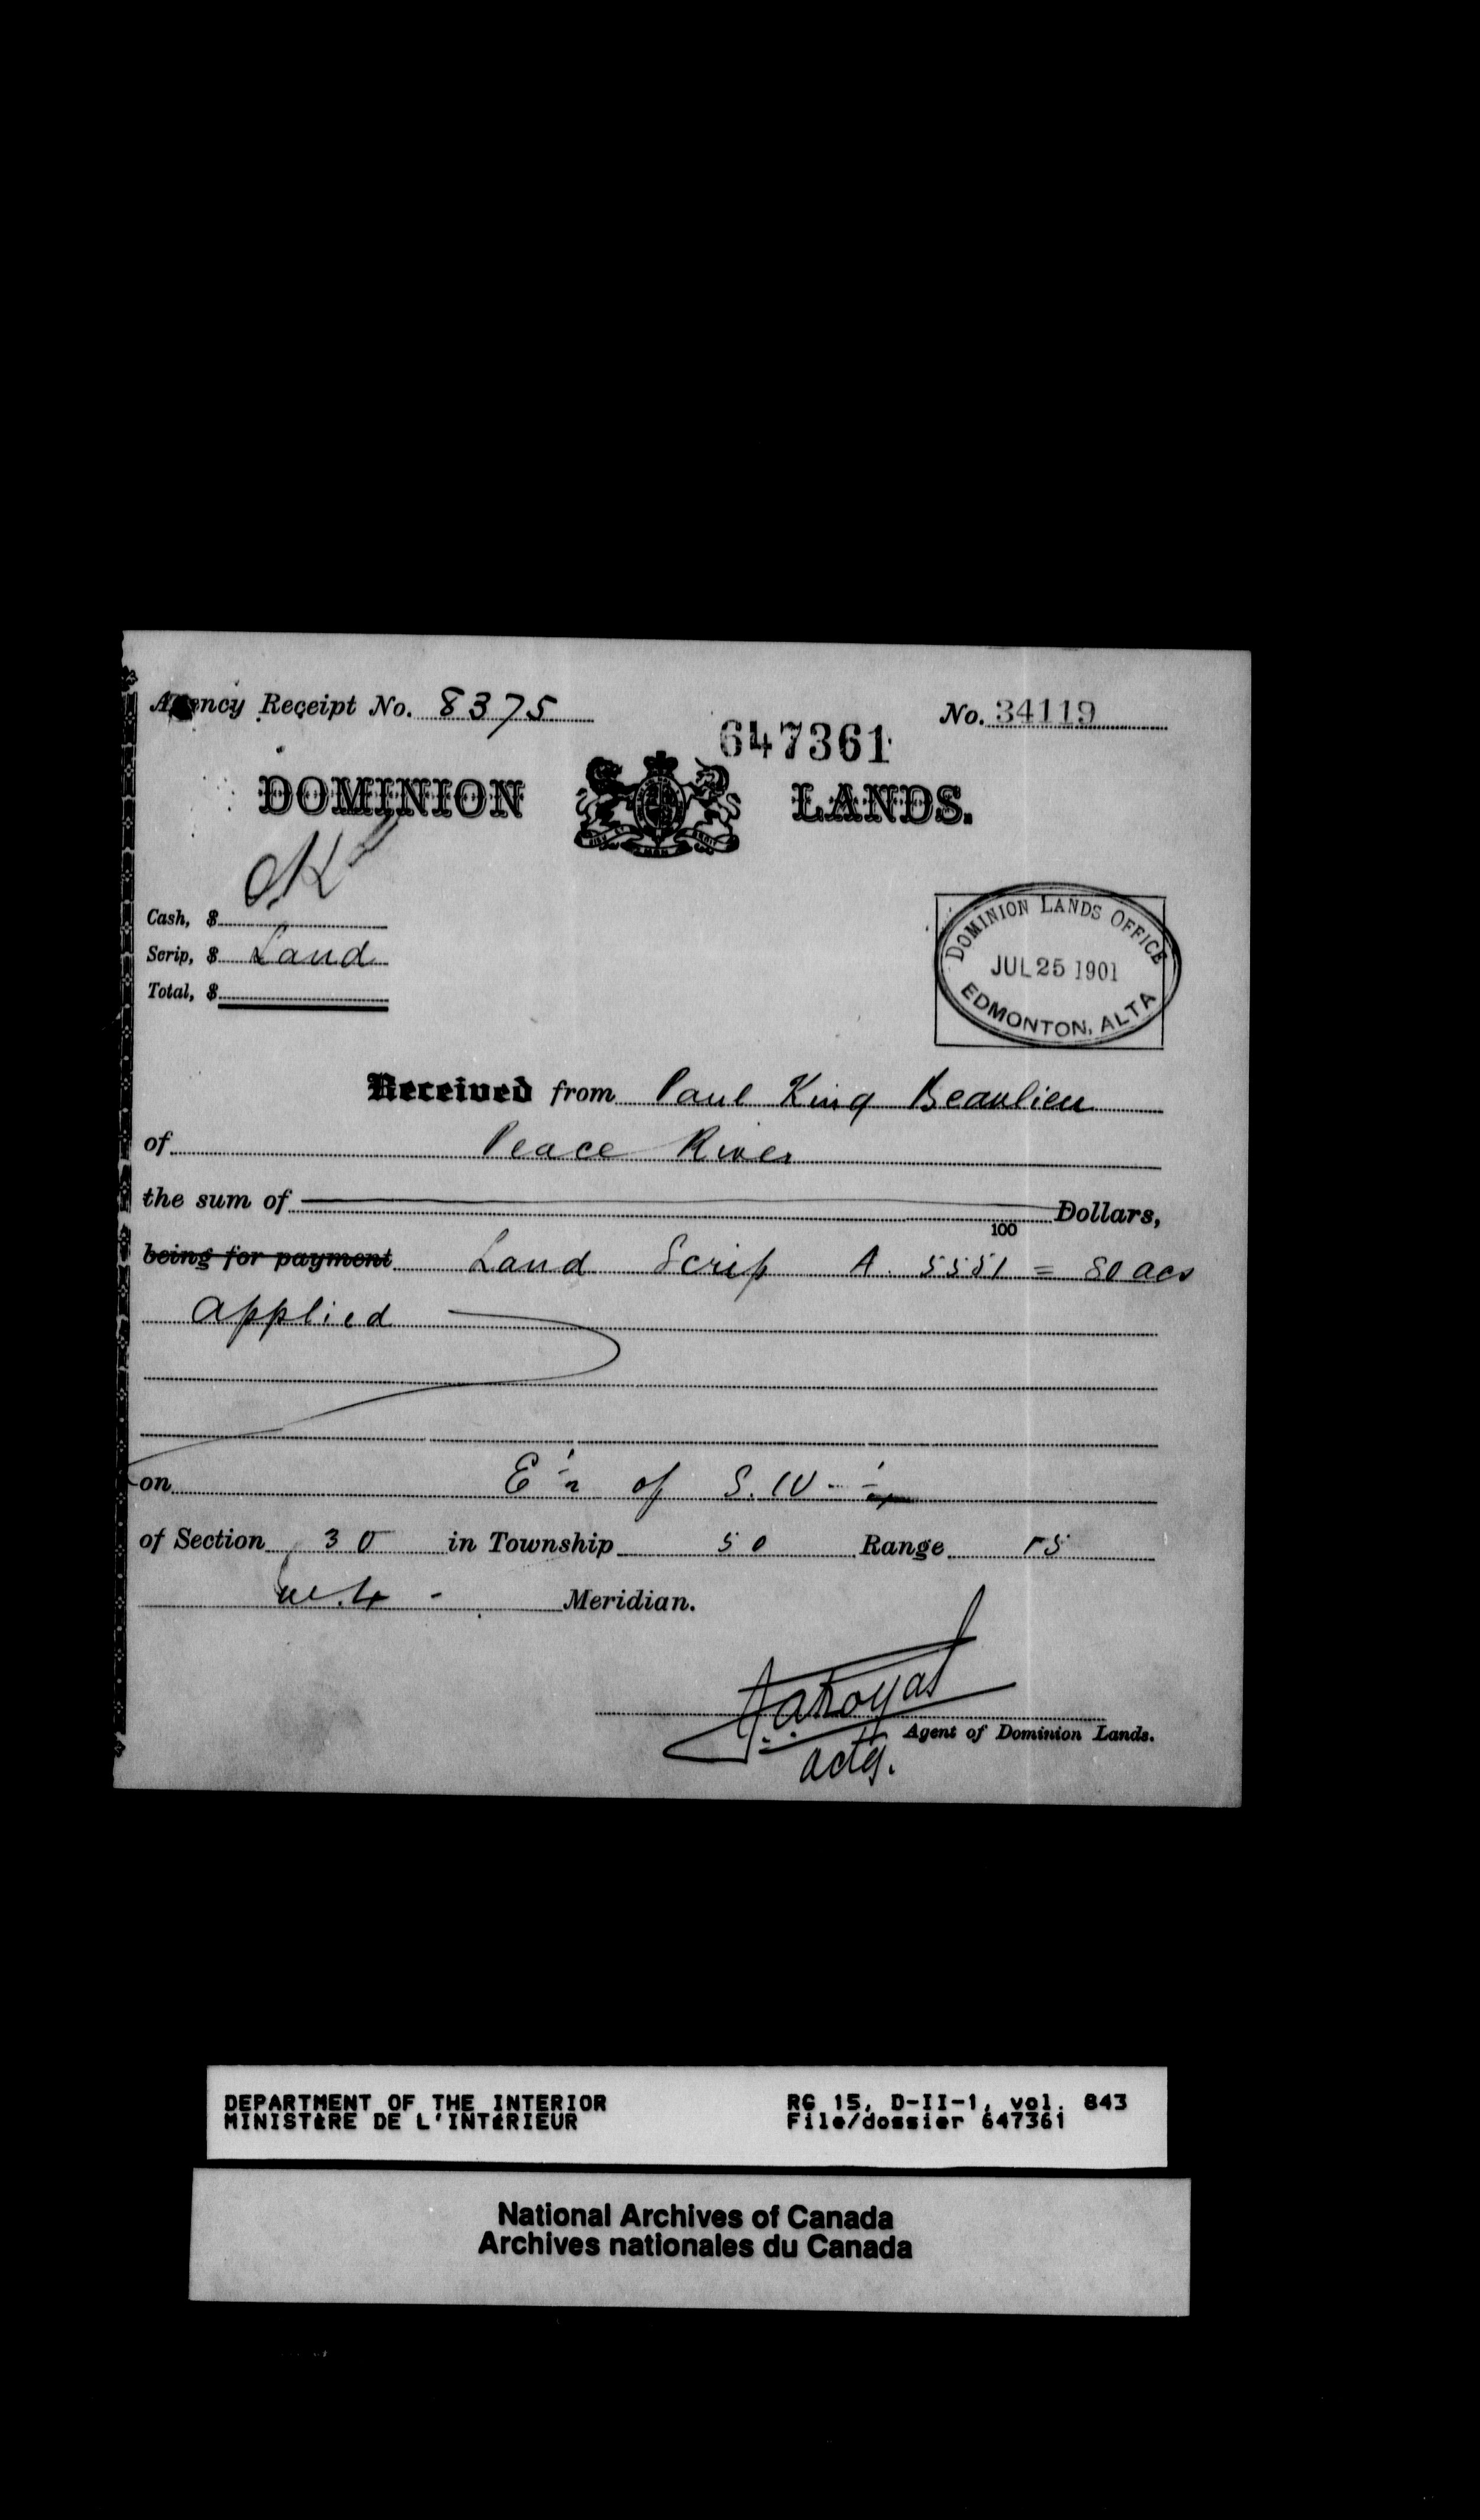 Agency Receipt No. 8375
No. 34119
647361
DOMINION LANDS.
OK
Cash, $
Scrip, $ Land
Total, $
DOMINION LANDS OFFICE
JUL 25 1901
EDMONTON, ALTA
Received from Paul King Beaulieu
of Peace River
the sum of Dollars,
100
being for payment Land Scrip A. 5551 = 80 acs
applied
on E ½ of S.W. ¼
of Section 30 in Township 50 Range
W.4 - Meridian.
Agent of Dominion Lands.
actg.
DEPARTMENT OF THE INTERIOR
MINISTÈRE DE L'INTÉRIEUR
RG 15, D-II-1, vol. 843
File/dossier 647361
National Archives of Canada
Archives nationales du Canada